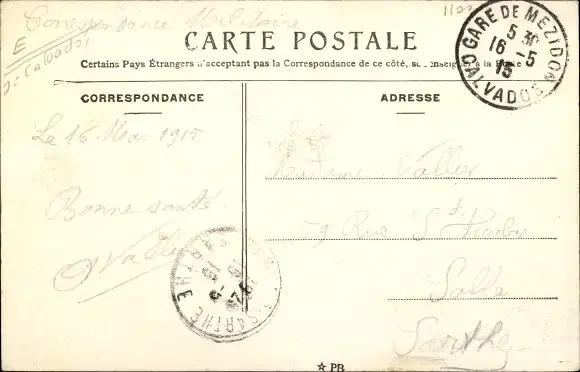 Correspondance Militaire
CARTE POSTALE
Certains Pays Étrangers n'acceptant pas la Correspondance de ce côté, se renseigner à la Poste
CORRESPONDANCE
ADRESSE
GARE DE MEZIDON
5 30
16 -5
15
CALVADOS
E
Calvados
Le 16 Mai 1915
Bonne santé
Vallée
Madame Vallée
59 Rue St Nicolas
Sarthe
SARTHE
★ PB